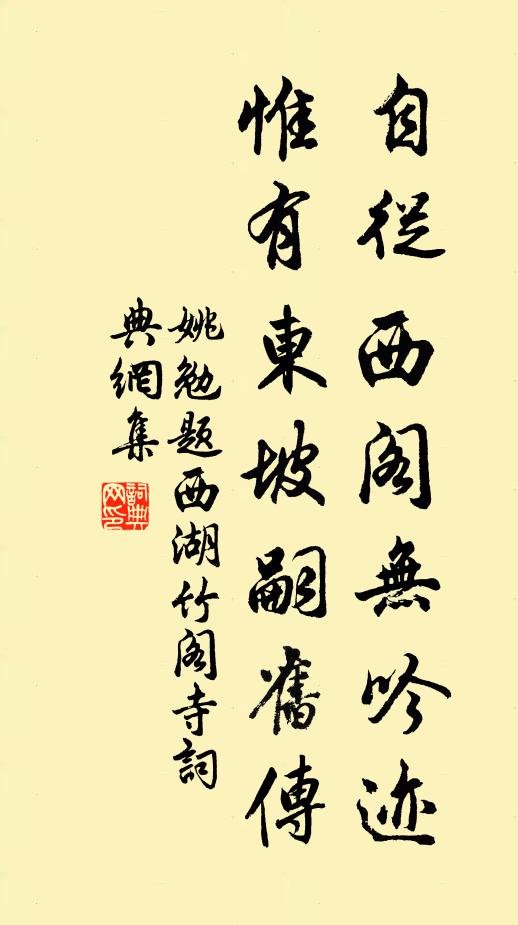 自從西阁無吟迹
惟有東坡嗣舊傳
姚勉题西湖竹阁寺詞
典網集
詞典
网印